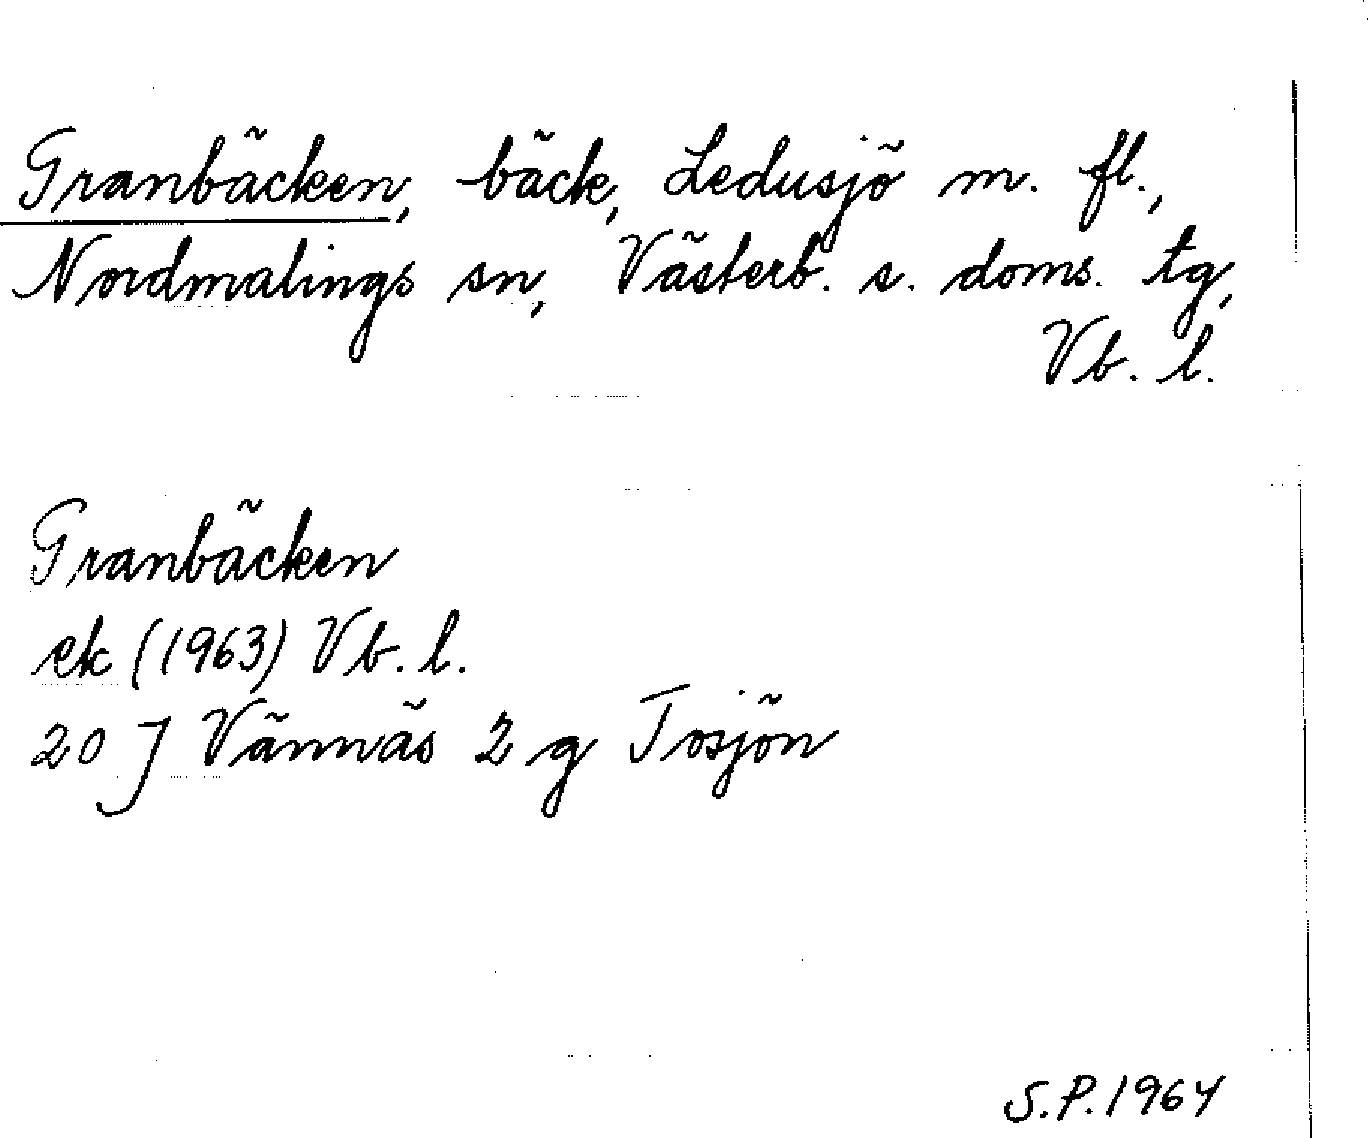 Granbäcken, bäck, Ledusjö m. fl.,
Nordmalings sn, Västerb. s. doms. tg,
Vb. l.
Granbäcken
ek (1963) Vb. l.
20 J Vännäs 2 g Tosjön
S.P. 1964